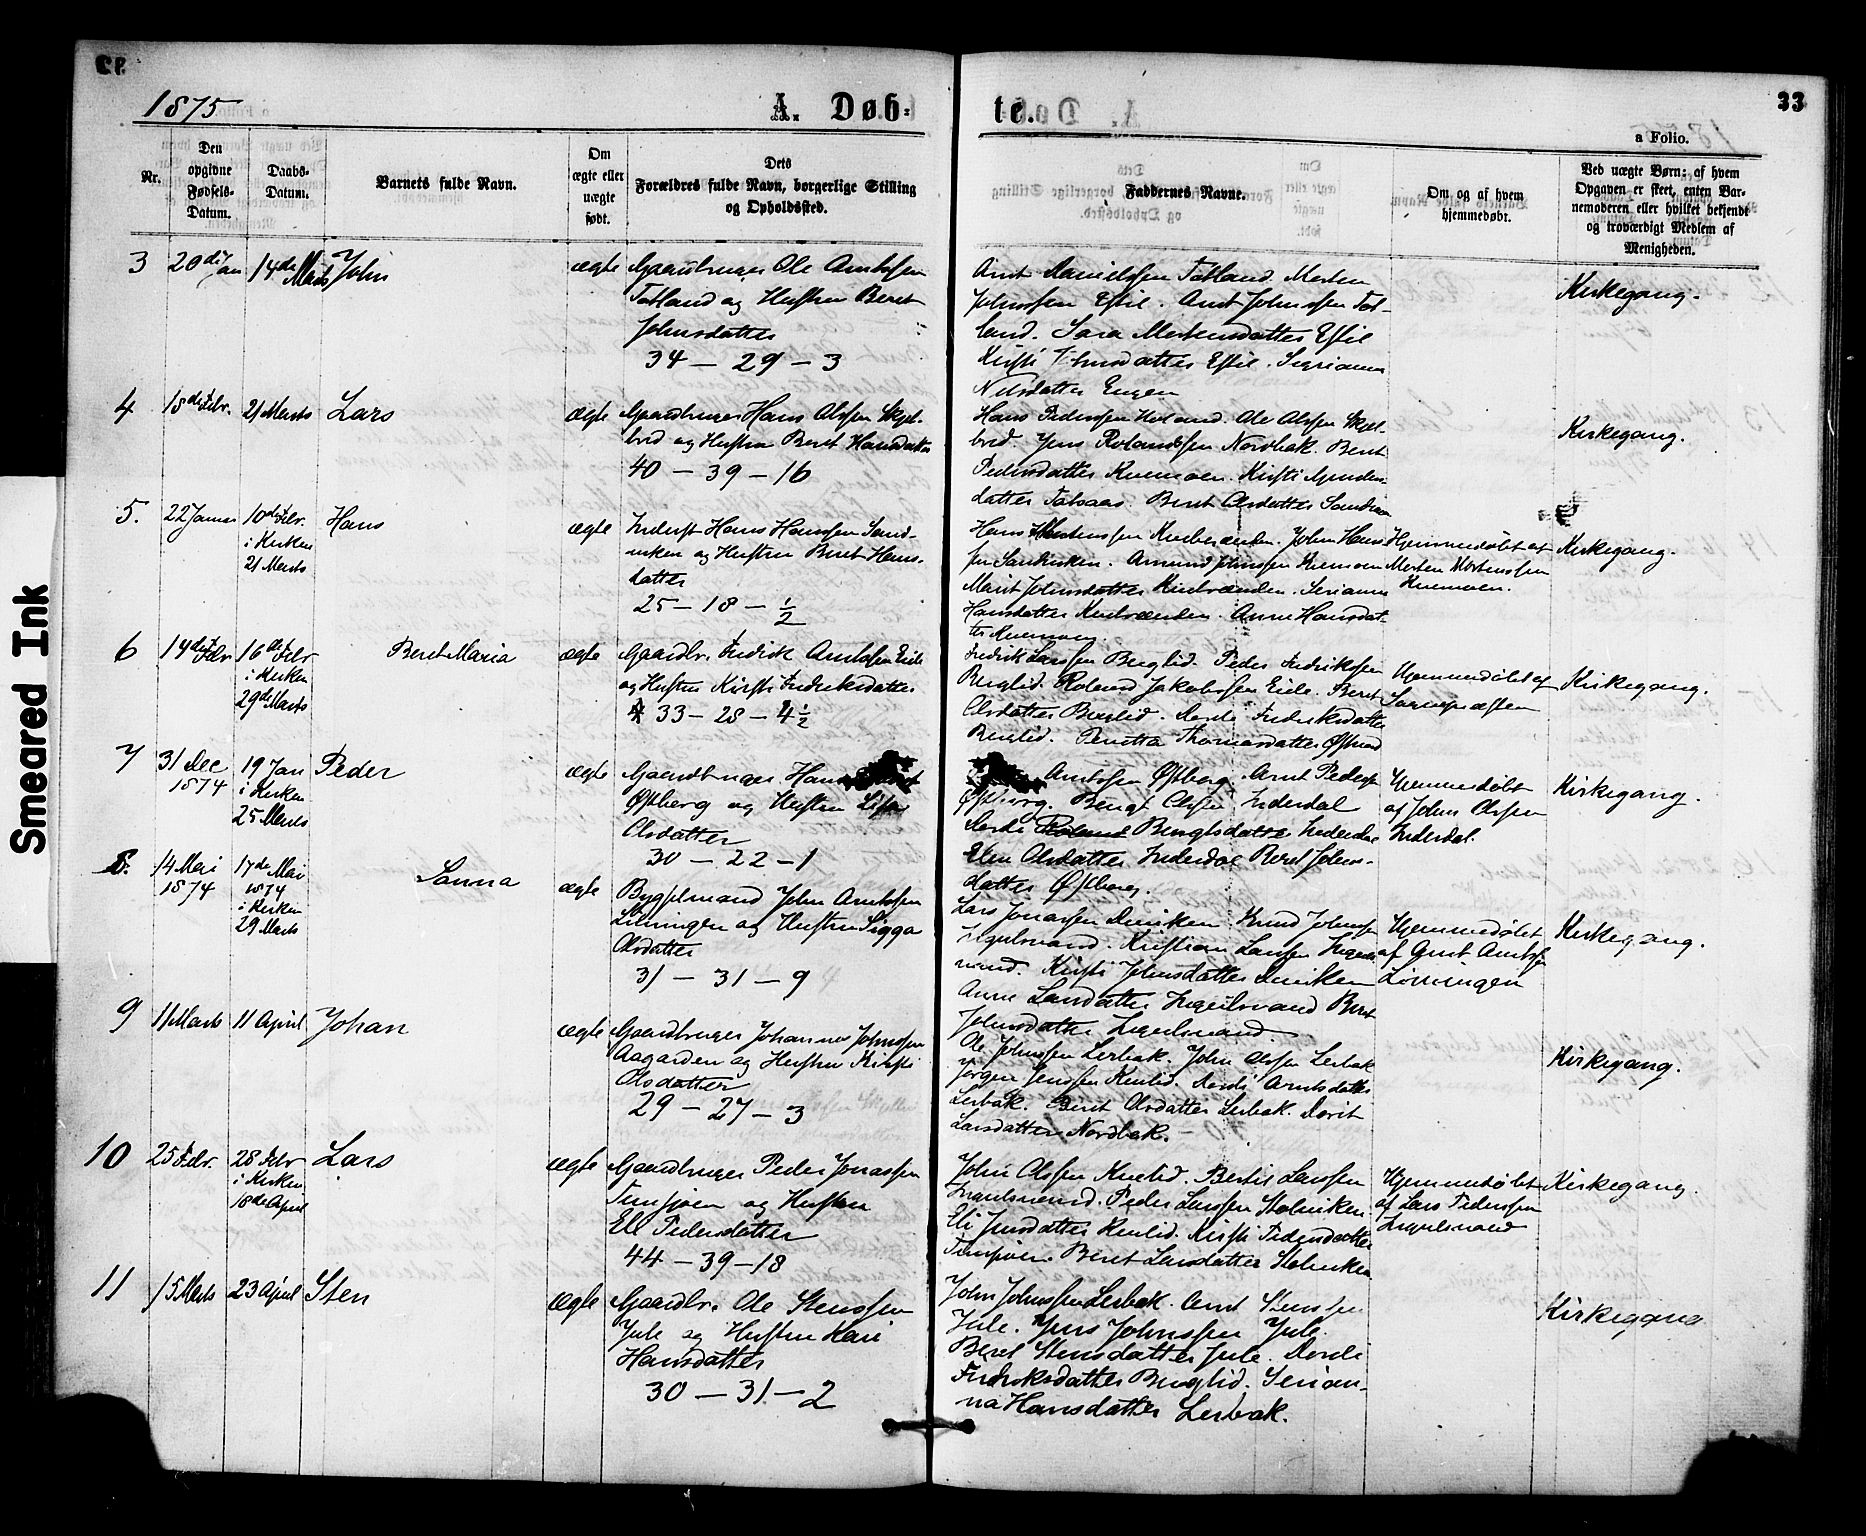 32
1875
A. Døb-
te.
33
a Folio.
Nr.
Den
opgivne
Fødsels-
Datum.
Daabs-
Datum.
Barnets fulde Navn.
Om
ægte eller
uægte
født.
Dets
Forældres fulde Navn, borgerlige Stilling
og Opholdssted.
Faddernes Navne.
Om og af hvem
hjemmedøbt.
Ved uægte Børn: af hvem
Opgaven er skeet, enten Bar-
nemoderen eller hvilket bekjendt
og troværdigt Medlem af
Menigheden.
3
20de Jan
14de Marts
John
ægte
Gaardbruger Ole Arntssen
Totland og Hustru Beret
Johnsdatter
34 — 29 — 3
Arnt Danielssen Totland. Morten
Johnssen Estil. Arnt Johnssen Tot-
land. Sara Mortensdatter Estil
Kirsti Johnsdatter Estil.
Nilsdatter Engen
Kirkegang.
4
15de Febr.
21 Marts
Lars
ægte
Gaardbruger Hans Olssen Skjel-
bred og Hustru Beret Hansdatter
40 — 39 — 16
Hans Pederssen. Ole Olssen Skjel-
bred. Jens Rolandssen Nordbak. Beret
Pedersdatter Kvemoen. Kirsti
datter. Beret Olsdatter
Kirkegang.
5.
22 Januar
10de Febr.
i Kirken
21 Marts
Hans
ægte
Inderst Hans Hanssen Sand-
viken og Hustru Beret Hans-
datter
25 — 18 — 1/2
Hans Mortenssen. John Hans
sen Sandviken. Amund Johnssen Kvemoen
Marit Johnsdatter. Serianna
Hansdatter. Anne Hansdat-
ter Kvemoen.
Hjemmedøbt af
Morten Mortenssen
Kvemoen.
Kirkegang.
6
14de Febr
16de Febr
i Kirken
29de Marts
Beret Maria
ægte
Gaardbr. Fredrik Arntssen Eide
og Hustru Kirsti Fredriksdatter
33 — 28 — 4 1/2
Fredrik Larssen Berglid. Peder Fredrikssen
Berglid. Roland Jakobssen Eide. Beret
Olsdatter Berglid. Dordi Fredriksdatter
Berglid. Thomasdatter
Hjemmedøbt af
Sognepræsten
Kirkegang.
7
31 Dec
1874
19 Jan
i Kirken
25 Marts
Peder
ægte
Gaardbruger Hans
Østberg og Hustru
Olsdatter
30 — 22 — 1
Arntssen Østberg. Arnt Peders
Østberg. Bengt Olssen Inderdal
Dordi Bengtsdatter Inderdal
Elen Olsdatter Inderdal Beret Johns-
datter Østberg.
Hjemmedøbt
af John Olssen
Inderdal.
Kirkegang.
8.
14 Mai
1874
17de Mai
1874
i Kirken
29 Marts
Sanna
ægte
Bygselmand John Arntssen
og Hustru Sigga
Olsdatter
31 — 31 — 9
Lars Jonassen. Knud Johnssen
Ingulsvand. Kristian Larssen Inguls
vand. Kirsti Johnsdatter
Anne Larsdatter Ingulsvand Beret
Johnsdatter Ingulsvand
Hjemmedøbt
af Arnt Arntssen
Kirkegang.
9
11 Marts
11 April
Johan
ægte
Gaardbruger Johannes Johnssen
Aagarden og Hustru Kirsti
Olsdatter
29 — 27 — 3
Ole Johnssen Lerbak. John Olssen Lerbak
Jørgen Jenssen Kvelid. Dordi Arntsdatter
Lerbak. Beret Olsdatter Lerbak. Dorit
Larsdatter Nordbak. —
Kirkegang.
10
25 Febr.
28 Febr
i Kirken
18de April
Lars
ægte
Gaardbruger Peder Jonassen
og Hustru
Eli Pedersdatter
44 — 39 — 18
John Olssen Kvelid. Bertil Larssen
Ingulsvand. Peder Larssen
Eli Jensdatter Kvelid. Kirsti Pedersdatter
Beret Larsdatter
Hjemmedøbt
af Lars Pederssen
Ingulsvand
Kirkegang.
11
15 Marts
23 April
Sten
ægte
Gaardbr. Ole Stenssen
Jule og Hustru Kari
Hansdatter
30 — 31 — 2
John Johnssen Lerbak. Arnt Stenssen
Jule. Jens Johnssen Jule.
Beret Stensdatter Jule. Dordi
Fredriksdatter Berglid. Serian-
na Hansdatter Lerbak.
Kirkegang
Smeared Ink